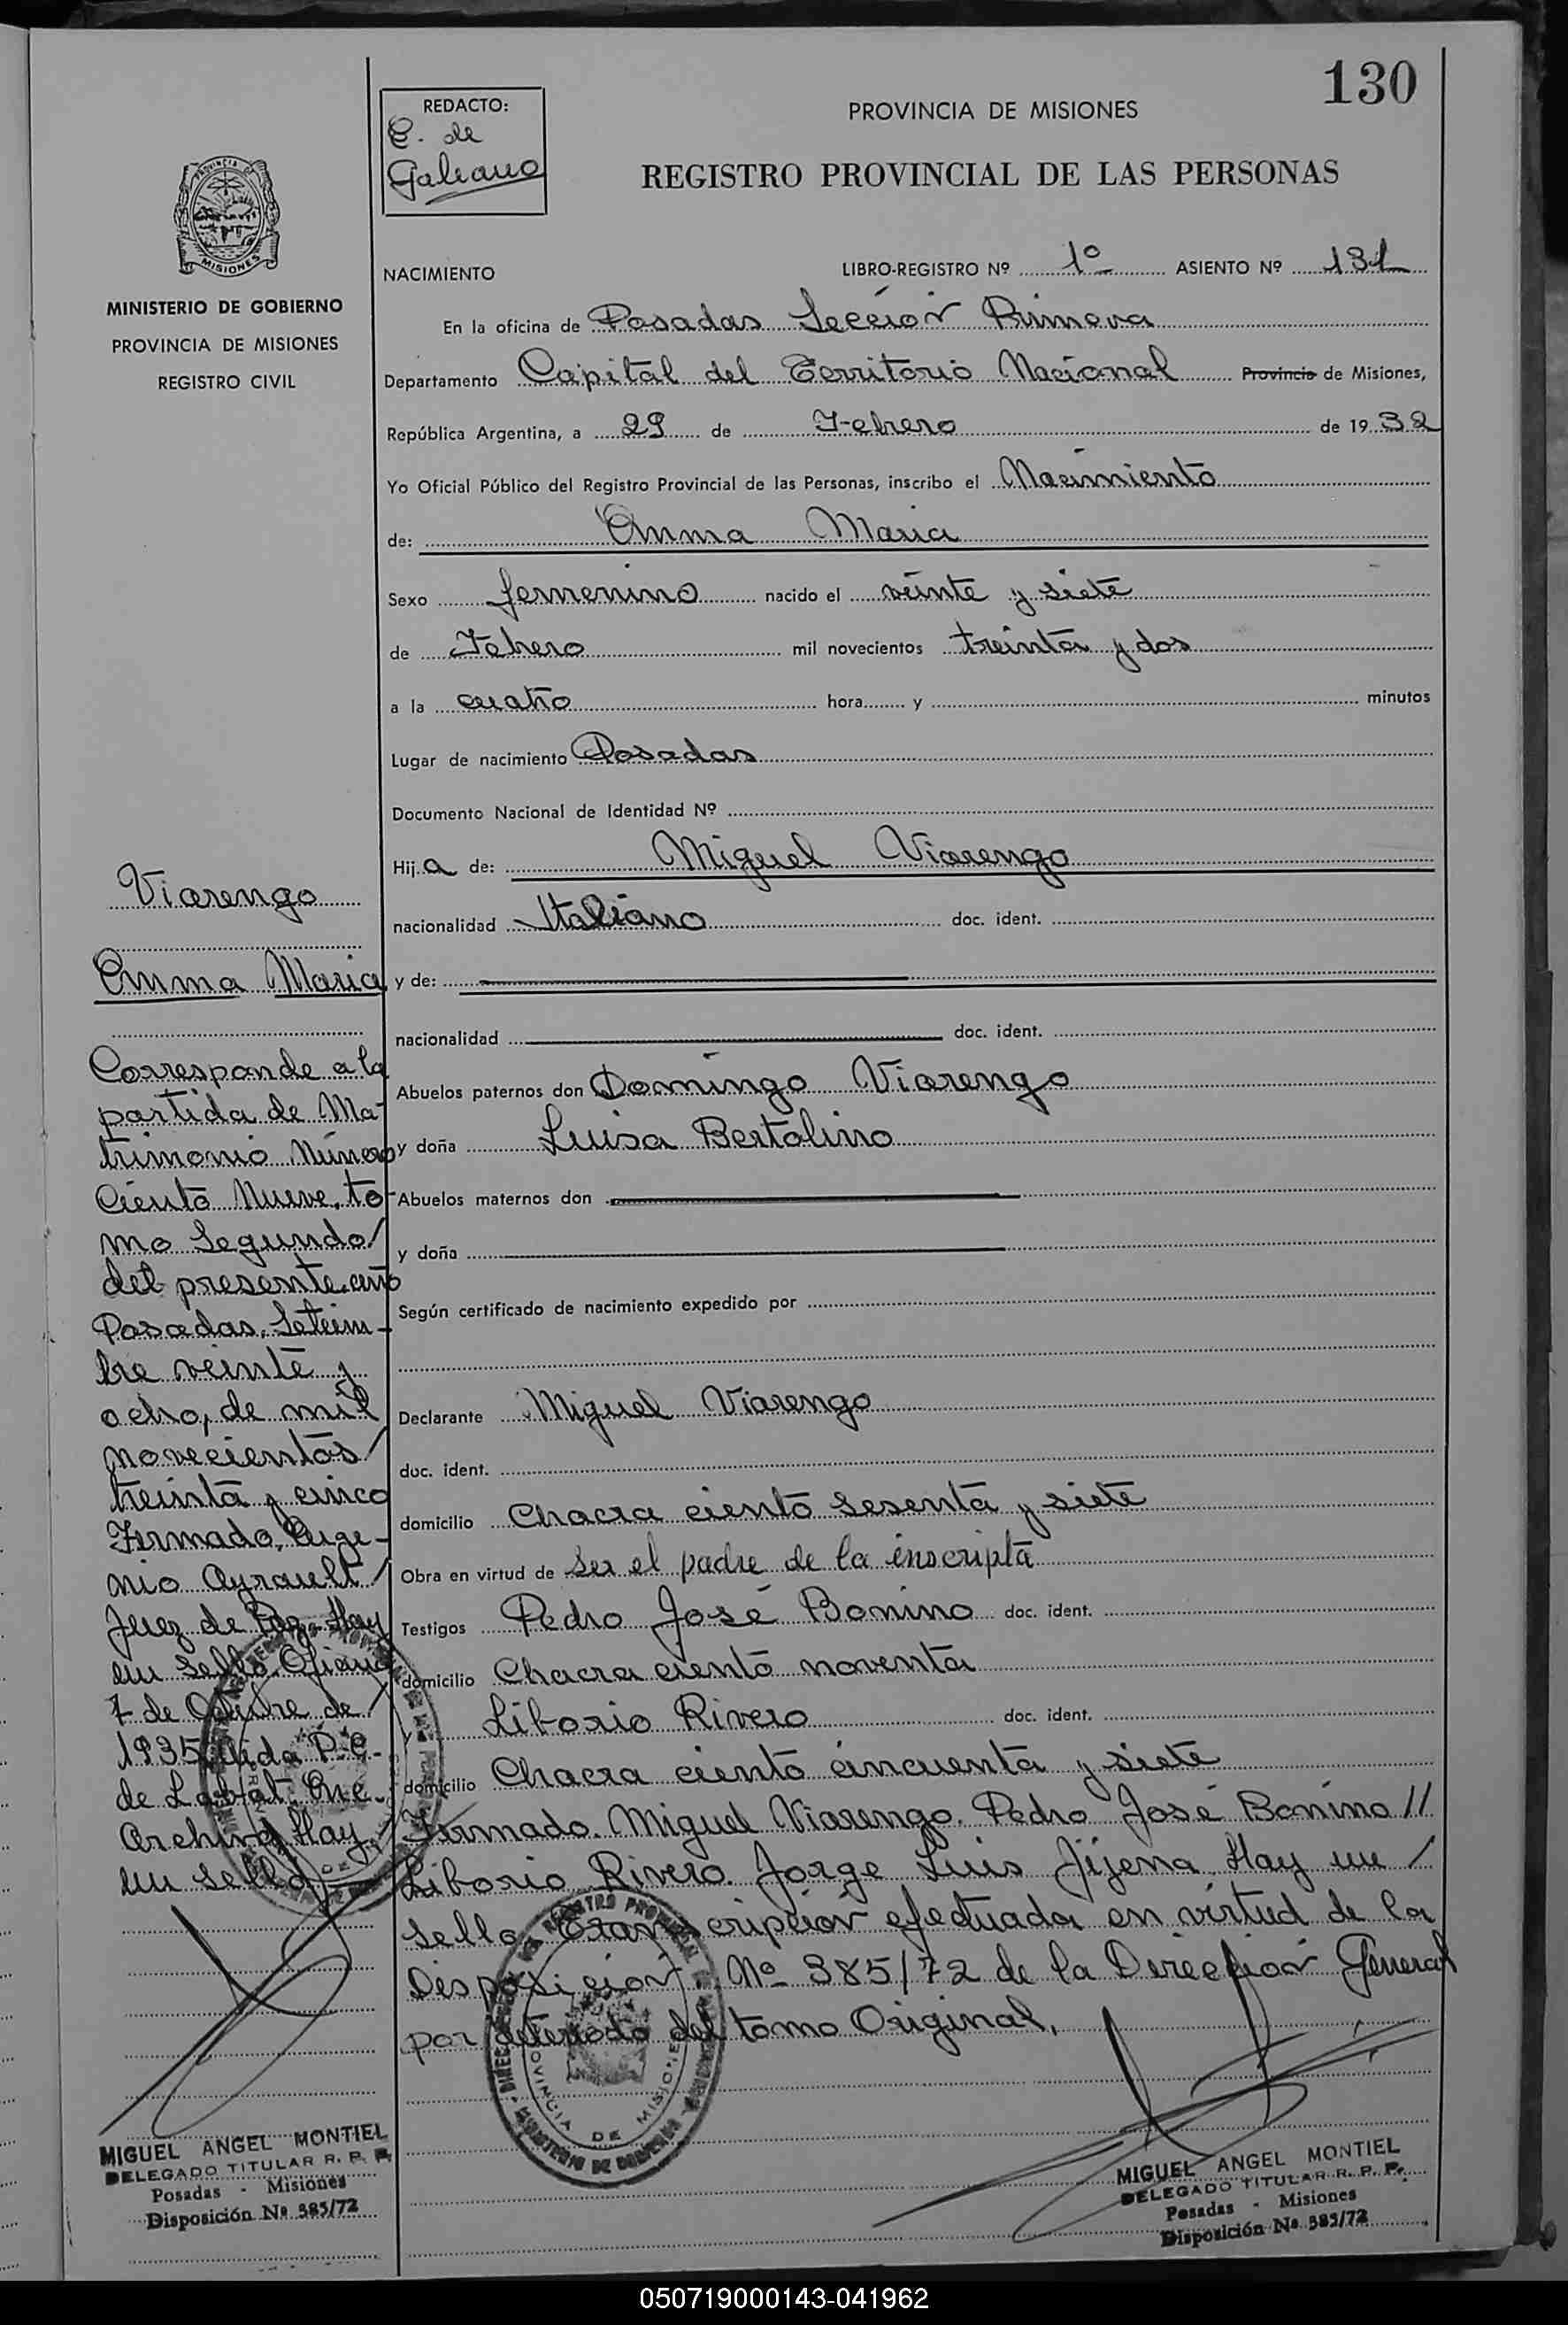 130
REDACTO:
E. de
Galeano
PROVINCIA DE MISIONES
REGISTRO PROVINCIAL DE LAS PERSONAS
PROVINCIA
MISIONES
MINISTERIO DE GOBIERNO
PROVINCIA DE MISIONES
REGISTRO CIVIL
NACIMIENTO
LIBRO-REGISTRO Nº 1º ASIENTO Nº 131
En la oficina de Posadas Sección Primera
Departamento Capital del Territorio Nacional Provincia de Misiones,
República Argentina, a 29 de Febrero de 1932
Yo Oficial Público del Registro Provincial de las Personas, inscribo el Nacimiento
de: Emma Maria
Sexo femenino nacido el veinte y siete
de Febrero mil novecientos treinta y dos
a la cuatro hora y minutos
Lugar de nacimiento Posadas
Documento Nacional de Identidad Nº
Hija de: Miguel Viarengo
nacionalidad Italiano doc. ident.
y de:
nacionalidad doc. ident.
Abuelos paternos don Domingo Viarengo
y doña Luisa Bertolino
Abuelos maternos don
y doña
Según certificado de nacimiento expedido por
Declarante Miguel Viarengo
doc. ident.
domicilio Chacra ciento sesenta y siete
Obra en virtud de ser el padre de la inscripta
Testigos Pedro José Bonino doc. ident.
domicilio Chacra ciento noventa
y Liborio Rivero doc. ident.
domicilio Chacra ciento cincuenta y siete
Firmado. Miguel Viarengo. Pedro José Bonino //
Liborio Rivero. Jorge Luis Jijena. Hay un /
sello. Transcripción efectuada en virtud de la
Disposición Nº 385/72 de la Dirección General
por deterioro del tomo Original.
Viarengo
Emma Maria
Corresponde a la
partida de Ma-
trimonio Número
Ciento Nueve, to-
mo Segundo/
del presente año
Posadas, Setiem-
bre veinte y
ocho, de mil
novecientos/
treinta y cinco
Firmado, Euge-
nio Ayrault/
Juez de Paz. Hay
un sello.
7 de Octubre de /
1935
de
Hay
un sello
MIGUEL ANGEL MONTIEL
DELEGADO TITULAR R. P. P.
Posadas - Misiones
Disposición Nº 385/72
PROVINCIA DE MISIONES
MINISTERIO DE GOBIERNO
MIGUEL ANGEL MONTIEL
DELEGADO TITULAR R. P. P.
Posadas - Misiones
Disposición Nº 385/72
050719000143-041962